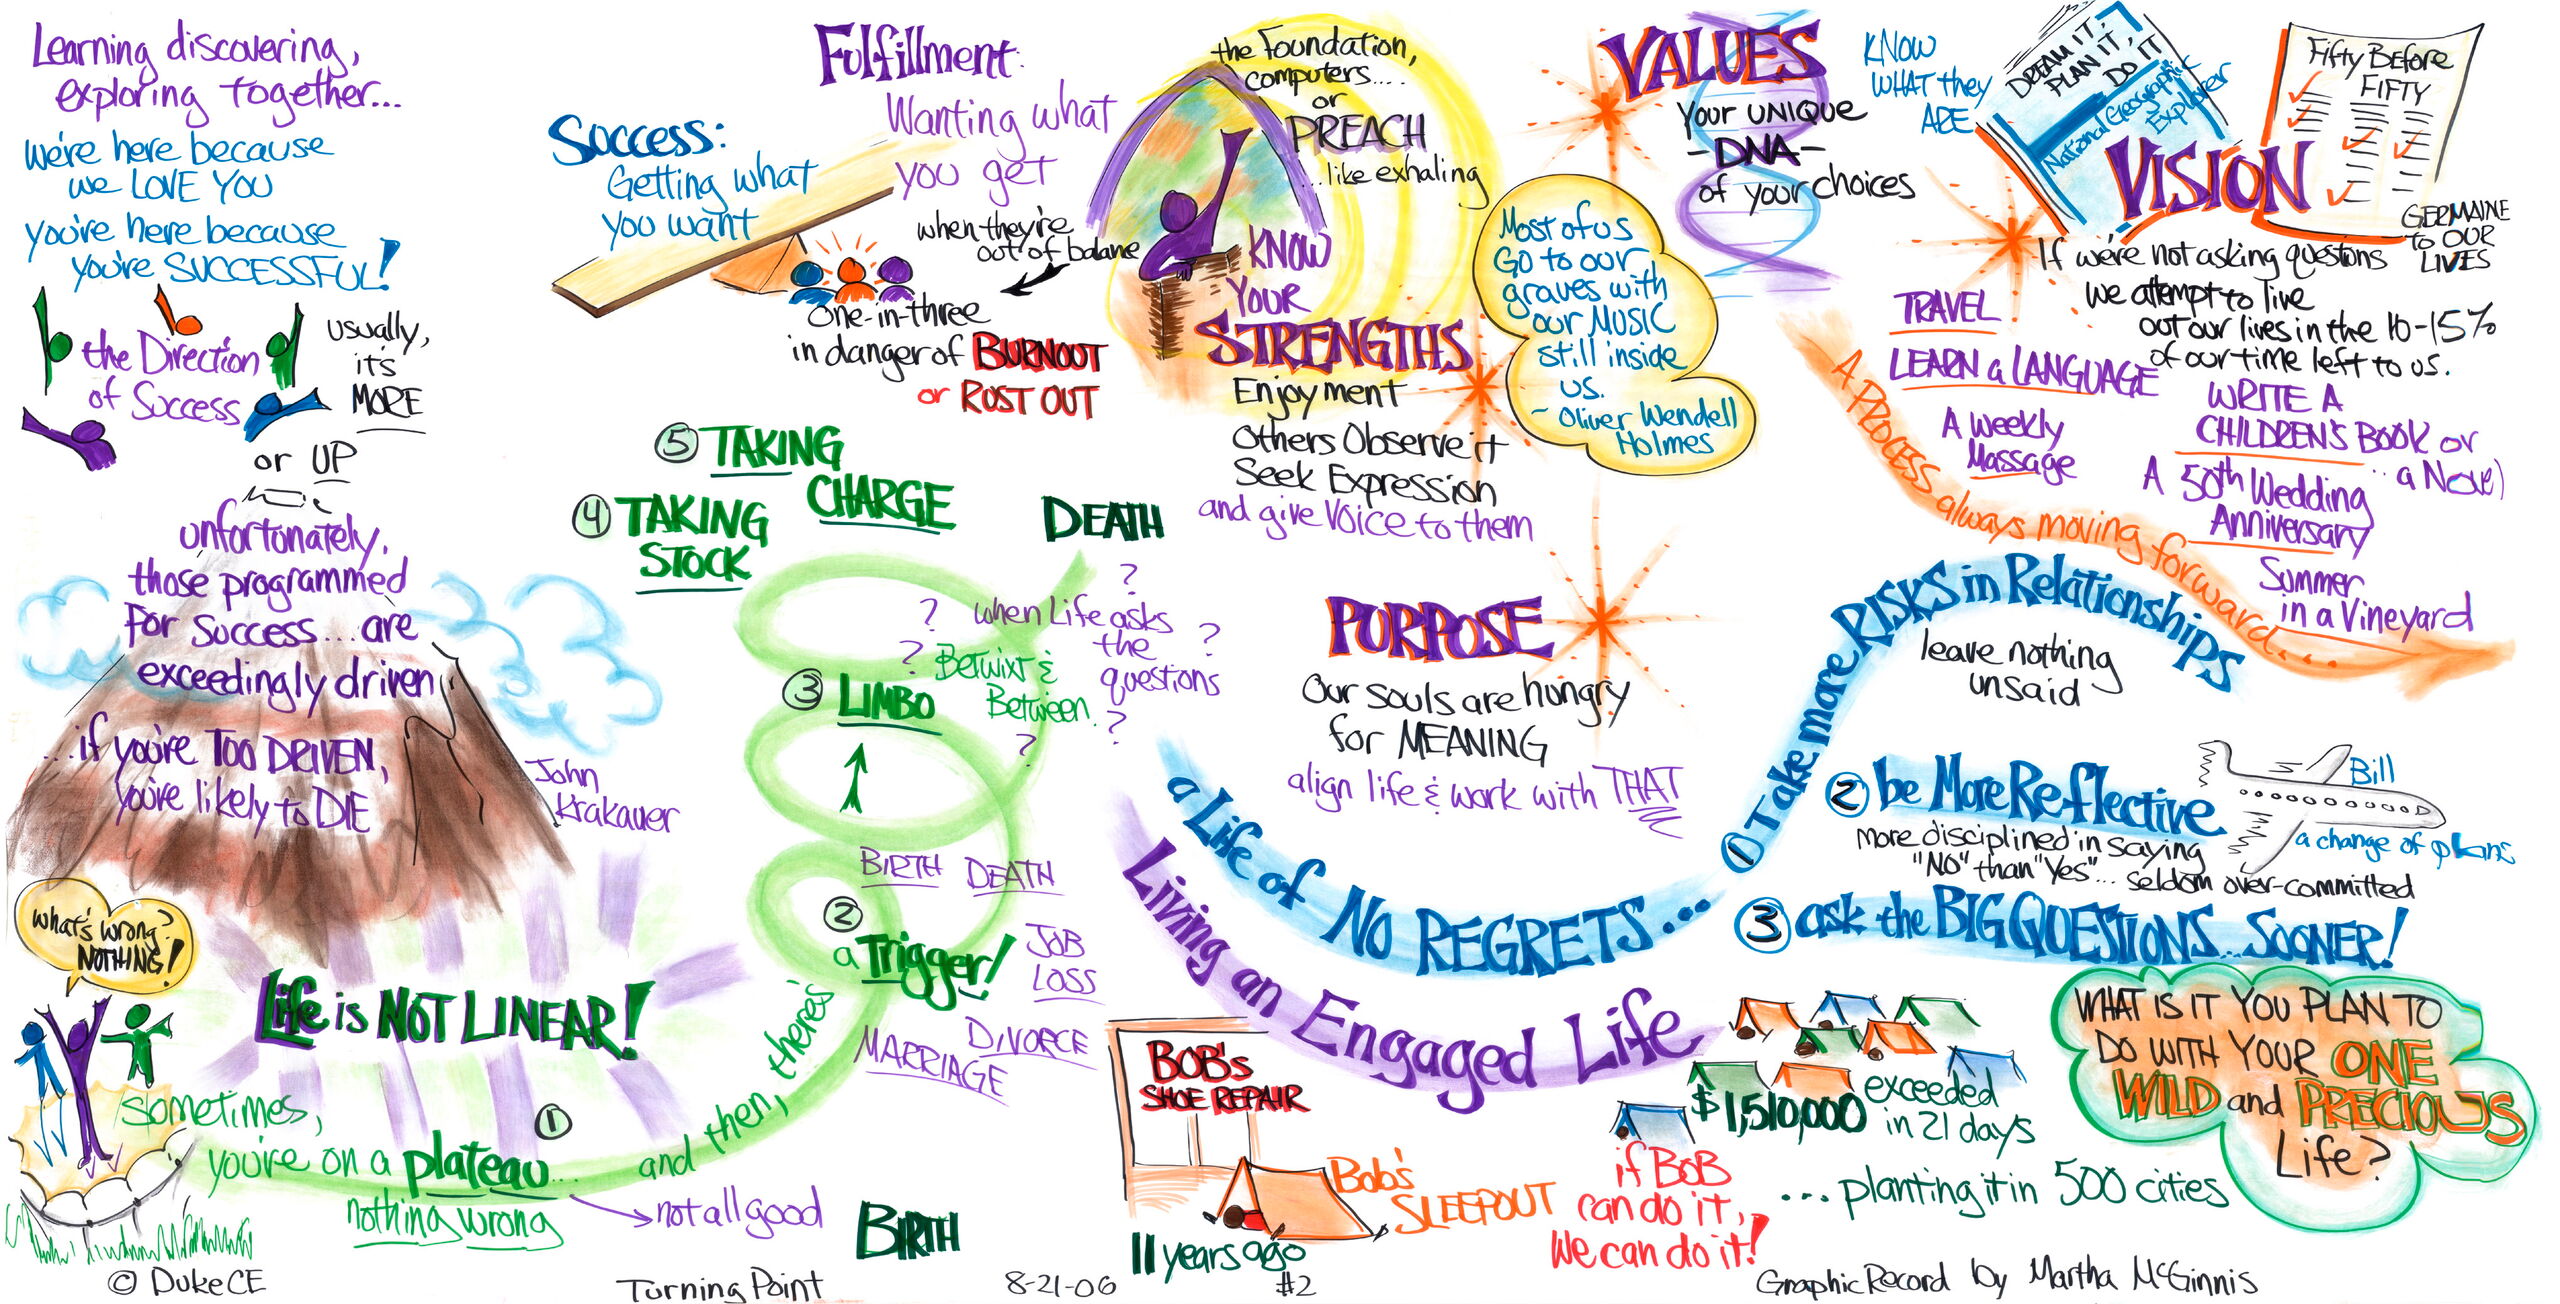 Learning discovering,
exploring together...
we're here because
we LOVE YOU
you're here because
you're SUCCESSFUL!
the Direction
of Success
usually,
it's
MORE
or UP
unfortunately,
those programmed
For success... are
exceedingly driven
...if you're TOO DRIVEN,
you're likely to DIE
John
Krakauer
what's wrong?
NOTHING!
Life is NOT LINEAR!
sometimes,
you're on a plateau...
①
nothing wrong
not all good
and then, there's
②
a Trigger!
BIRTH DEATH
JOB
LOSS
DIVORCE
MARRIAGE
③ LIMBO
Betwixt &
Between.
? when Life asks ?
the ?
? questions
?
?
④ TAKING
STOCK
⑤ TAKING
CHARGE
DEATH
BIRTH
Success:
Getting what
you want
Fulfillment:
Wanting what
you get
when they're
out of balane
One-in-three
in danger of BURNOUT
or RUST OUT
the Foundation,
computers....
or
PREACH
...like exhaling
KNOW
YOUR
STRENGTHS
Enjoyment
Others Observe it
Seek Expression
and give VOICE to them
Most of us
Go to our
graves with
our MUSIC
still inside
us.
- Oliver Wendell
Holmes
VALUES
Your UNIQUE
-DNA-
of your choices
KNOW
WHAT they
ARE
DREAM IT,
PLAN IT,
DO IT
National Geographic
Explorer
VISION
Fifty Before
FIFTY
GERMAINE
to OUR
LIVES
If we're not asking questions
we attempt to live
out our lives in the 10-15%
of our time left to us.
TRAVEL
LEARN a LANGUAGE
A Weekly
Massage
WRITE A
CHILDREN'S BOOK or
...a Novel
A 50th Wedding
Anniversary
Summer
in a Vineyard
A PROCESS always moving forward....
PURPOSE
Our souls are hungry
for MEANING
align life & work with THAT
a Life of NO REGRETS...
① Take more RISKS in Relationships
leave nothing
unsaid
② be More Reflective
more disciplined in saying
"NO" than "Yes"... seldom over-committed
Bill
a change of plans
③ ask the BIG QUESTIONS...SOONER!
Living an Engaged Life
BOB's
SHOE REPAIR
Bob's
SLEEPOUT
11 years ago
if BOB
can do it,
We can do it!
$1,510,000 exceeded
in 21 days
... planting it in 500 cities
WHAT IS IT YOU PLAN TO
DO WITH YOUR ONE
WILD and PRECIOUS
Life?
© DukeCE
Turning Point
8-21-06
#2
Graphic Record by Martha McGinnis